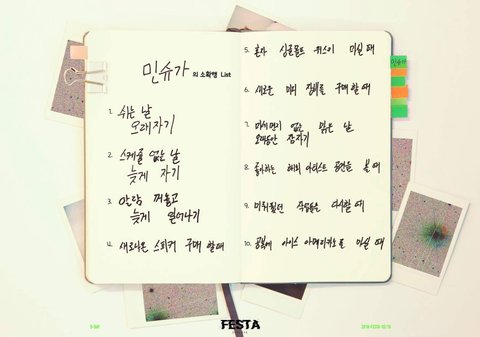 민슈가 의 소확행 List
1. 쉬는 날
오래자기
2. 스케줄 없는 날
늦게 자기
3. 알람 꺼놓고
늦게 일어나기
4. 새로나온 스피커 구매 할때
5. 혼자 싱글몰트 위스키 마실 때
6. 새로운 미디 장비를 구매 할 때
7. 미세먼지 없는 맑은 날
오랫동안 잠자기
8. 좋아하는 해외 아티스트 공연을 볼 때
9. 미뤄뒀던 작업들을 다시할 때
10. 공복에 아이스 아메리카노를 마실 때
민슈가
FESTA